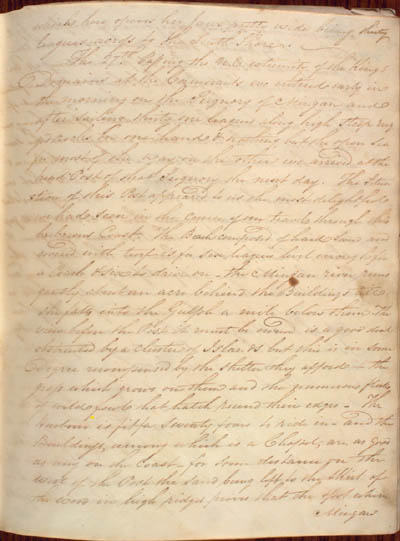 which here opens her jaws pretty wide being thirty
leagues across to the South Shore.
The 7th. Leaving the extremity of the Kings
Domains at the Cormorants we entered early in
the morning on the Seignory of Mingan and
after sailing thirty one leagues along high steep
on one hand & nothing but the open Sea
for most of the way on the other we arrived at the
Post of that Seignory the next day. The Situa-
tion of this Post appeared to us the most delightful
we had seen in the course of our travels through this
barbarous Coast. The Beach composed of hard Sand and
covered with turf is for six leagues level enough for
a Coach & six to drive on. The Mingan river runs
gently about an acre behind the Buildings and
empties into the Gulph a mile below them. The
view before the Post it must be owned is a good deal
obstructed by a cluster of Islands but this is in some
degree recompensed by the shelter they afford - the
grass which grows on them and the numerous flocks
of wild fowls that hatch round their edges - The
harbour is fit for Seventy fours to ride in - and the
Buildings, among which is a Chapel, are as good
as any on the Coast - for some distance on the
west of the Post the Sand being left to the Skirt of
the wood in high ridges proves that the spot where
Mingan